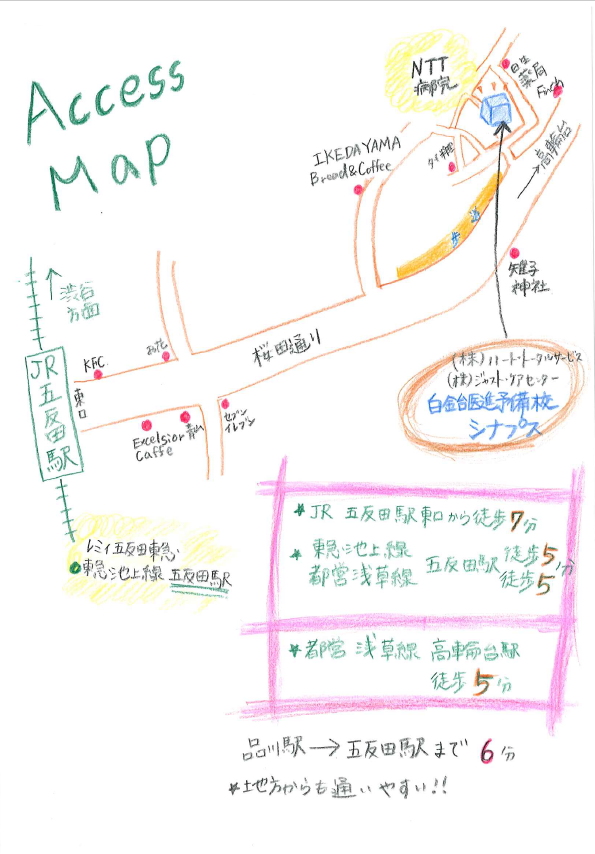 Access
Map
NTT
病院
日生
薬局
Finch
高輪台
タイ料理
IKEDAYAMA
Bread&Coffee
歩道
雉子
神社
渋谷
方面
桜田通り
KFC
お花
JR五反田駅
東口
Excelsior
Caffe
青山
セブン
イレブン
(株)ハート・トータルサービス
(株)ジャスト・ケアセンター
白金台医進予備校
シナプス
レミィ五反田東急
東急池上線 五反田駅
★JR 五反田駅東口から徒歩7分
★東急池上線 五反田駅 徒歩5分
都営浅草線 徒歩5
★都営 浅草線 高輪台駅
徒歩5分
品川駅→五反田駅まで 6分
★地方からも通いやすい!!